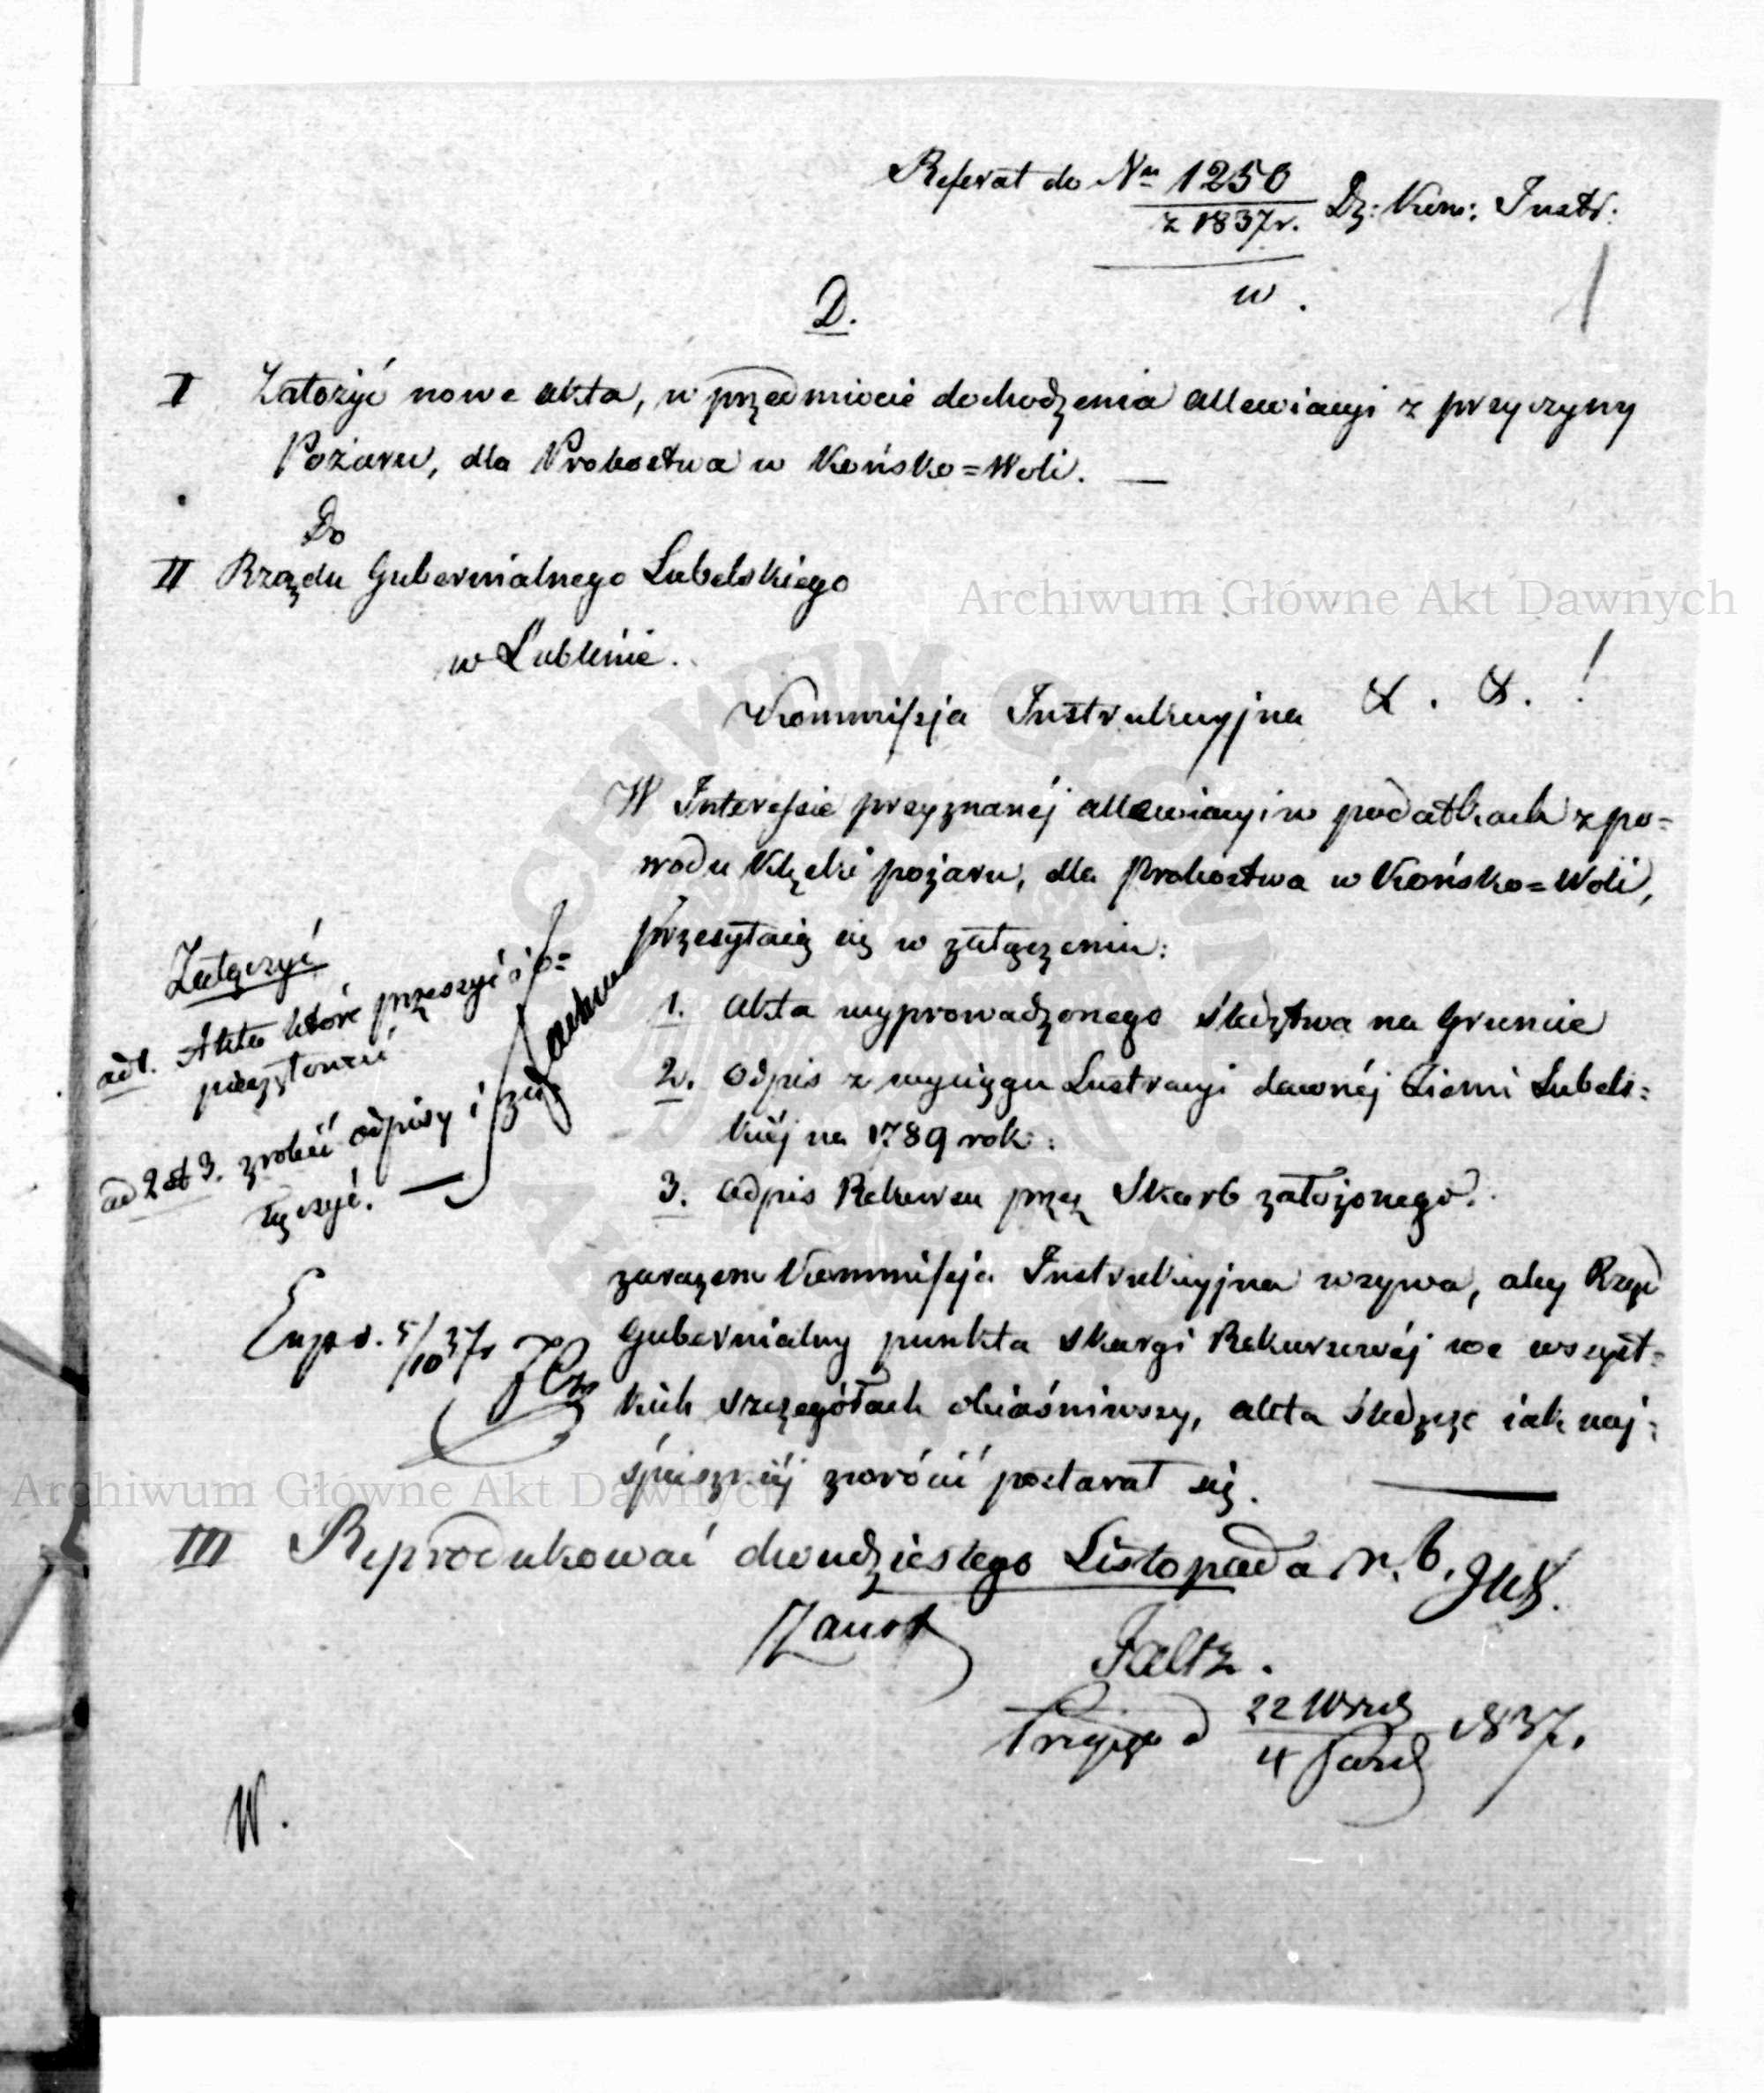 Referat do Nru 1250
z 1837 r. Dz: Kom: Instr:
w.
D.
I Założyć nowe akta, w przedmiocie dochodzenia allewiacyi z przyczyny
Pożaru, dla Probostwa w Końsko=Woli. —
Do
II Rządu Gubernialnego Lubelskiego
w Lublinie.
Kommissja Instrukcyjna & . & . !
W Interessie przyznanéj allewiacyi w podatkach z po=
wodu klęski pożaru, dla Probostwa w Końsko=Woli,
przesyłaią się w załączeniu:
1. akta wyprowadzonego śledztwa na Gruncie
2. odpis z wyciągu Lustracyi dawnéj Ziemi Lubels=
kiéj na 1789 rok:
3. odpis Rekursu przez Skarb założonego.
Załączyć
ad 1. Akta które przeszyć i o=
pieczętować
ad 2 et 3. zrobić odpisy i za=
łączyć. —
zarazem Kommissja Instrukcyjna wzywa, aby Rząd
Gubernialny punkta skargi Rekursowéj we wszyst=
kich szczegółach obiaśniwszy, akta śledcze iak naj=
śpieszniéj zwrócić postarał się. —
Exped. 5/10 37r
III Reprodukować dwudziestego Listopada r. b.
Faltz.
22 Wrześ
4 Paźd 1837r.
W.
Archiwum Główne Akt Dawnych
Archiwum Główne Akt Dawnych